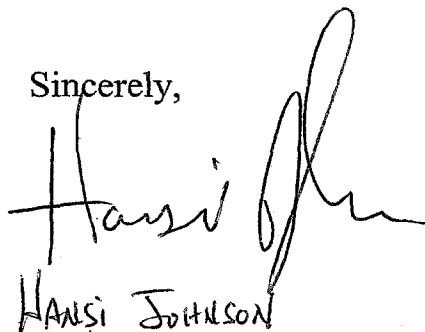 Sincerely,
Hansi J
HANSI JOHNSON